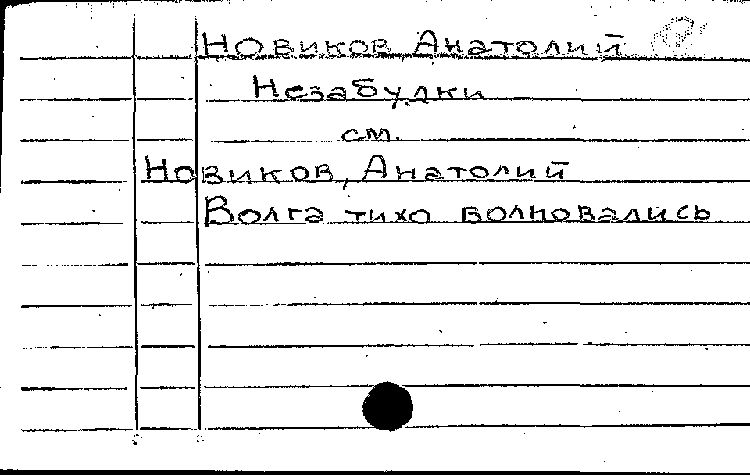 Новиков Анатолий
Незабудки
см.
Новиков, Анатолий
Волга тихо волновались